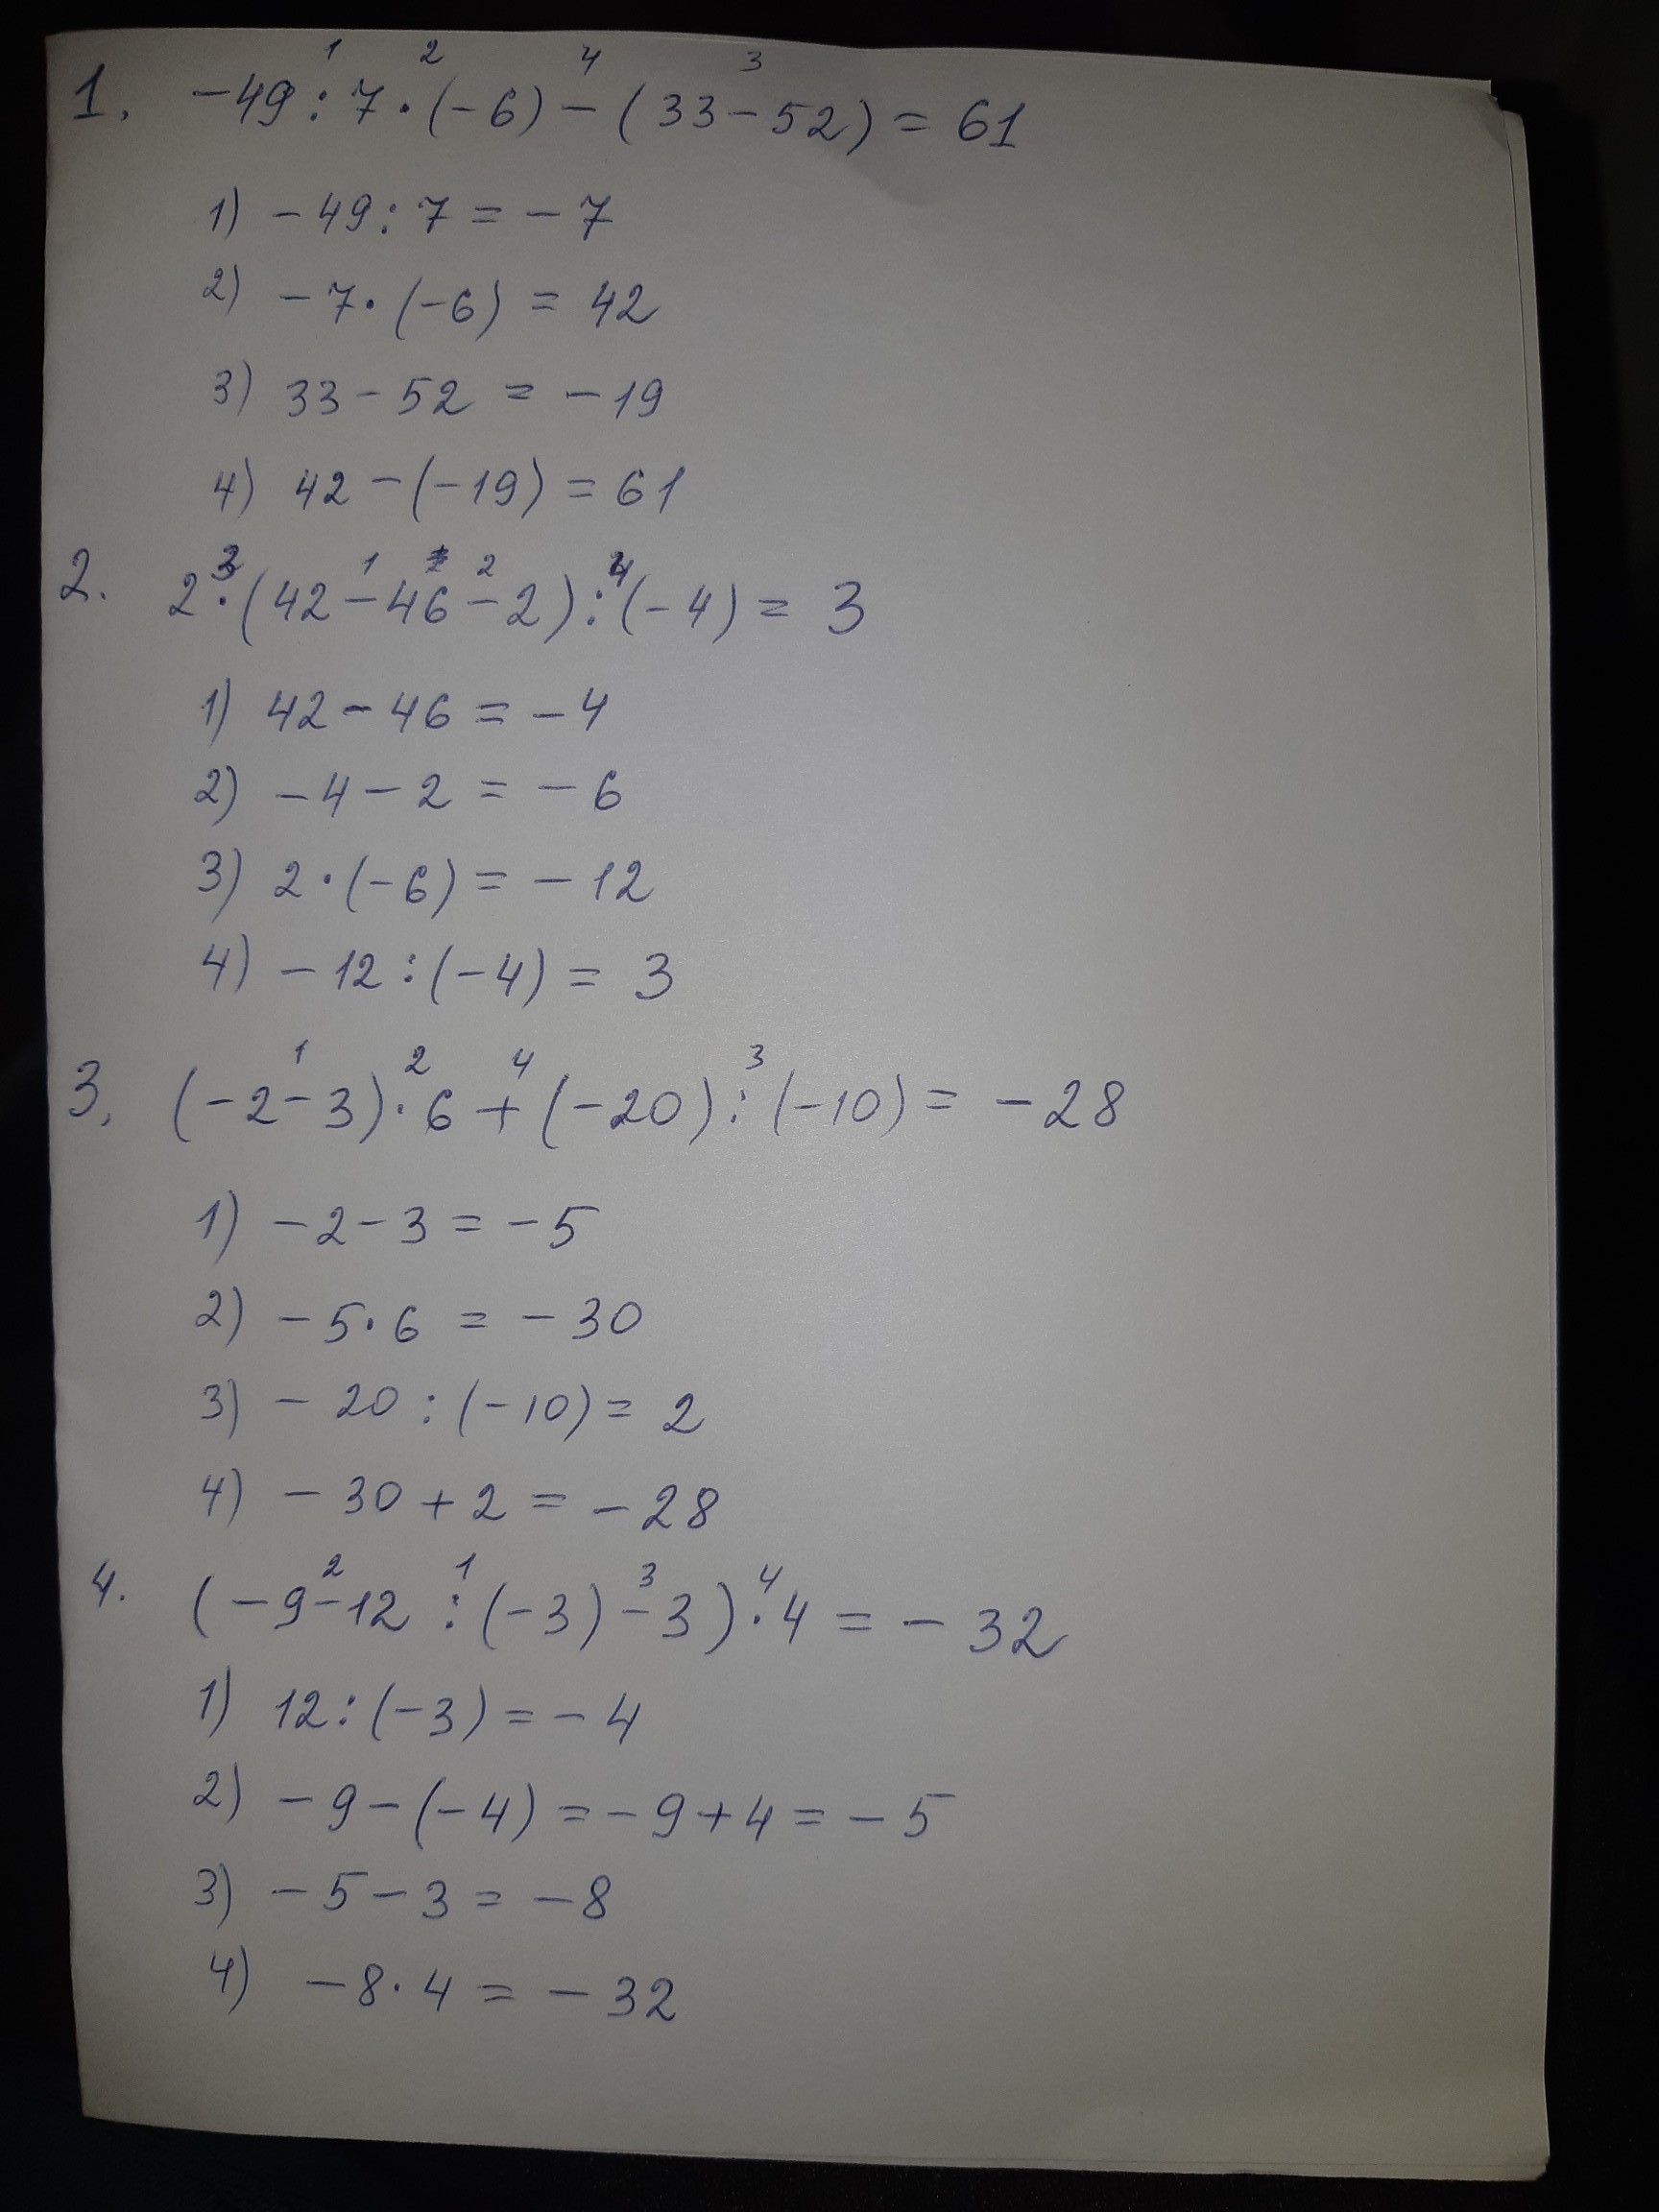 1 2 4 3
1. -49 : 7 · (-6) - (33 - 52) = 61
1) -49 : 7 = -7
2) -7 · (-6) = 42
3) 33 - 52 = -19
4) 42 - (-19) = 61
3 1 2 4
2. 2 · (42 - 46 - 2) : (-4) = 3
1) 42 - 46 = -4
2) -4 - 2 = -6
3) 2 · (-6) = -12
4) -12 : (-4) = 3
1 2 4 3
3. (-2 - 3) · 6 + (-20) : (-10) = -28
1) -2 - 3 = -5
2) -5 · 6 = -30
3) -20 : (-10) = 2
4) -30 + 2 = -28
2 1 3 4
4. (-9 - 12 : (-3) - 3) · 4 = -32
1) 12 : (-3) = -4
2) -9 - (-4) = -9 + 4 = -5
3) -5 - 3 = -8
4) -8 · 4 = -32